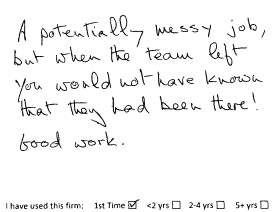 A potentially messy job,
but when the team left
you would not have known
that they had been there!
Good work.
I have used this firm: 1st Time ☑ <2 yrs ☐ 2-4 yrs ☐ 5+ yrs ☐